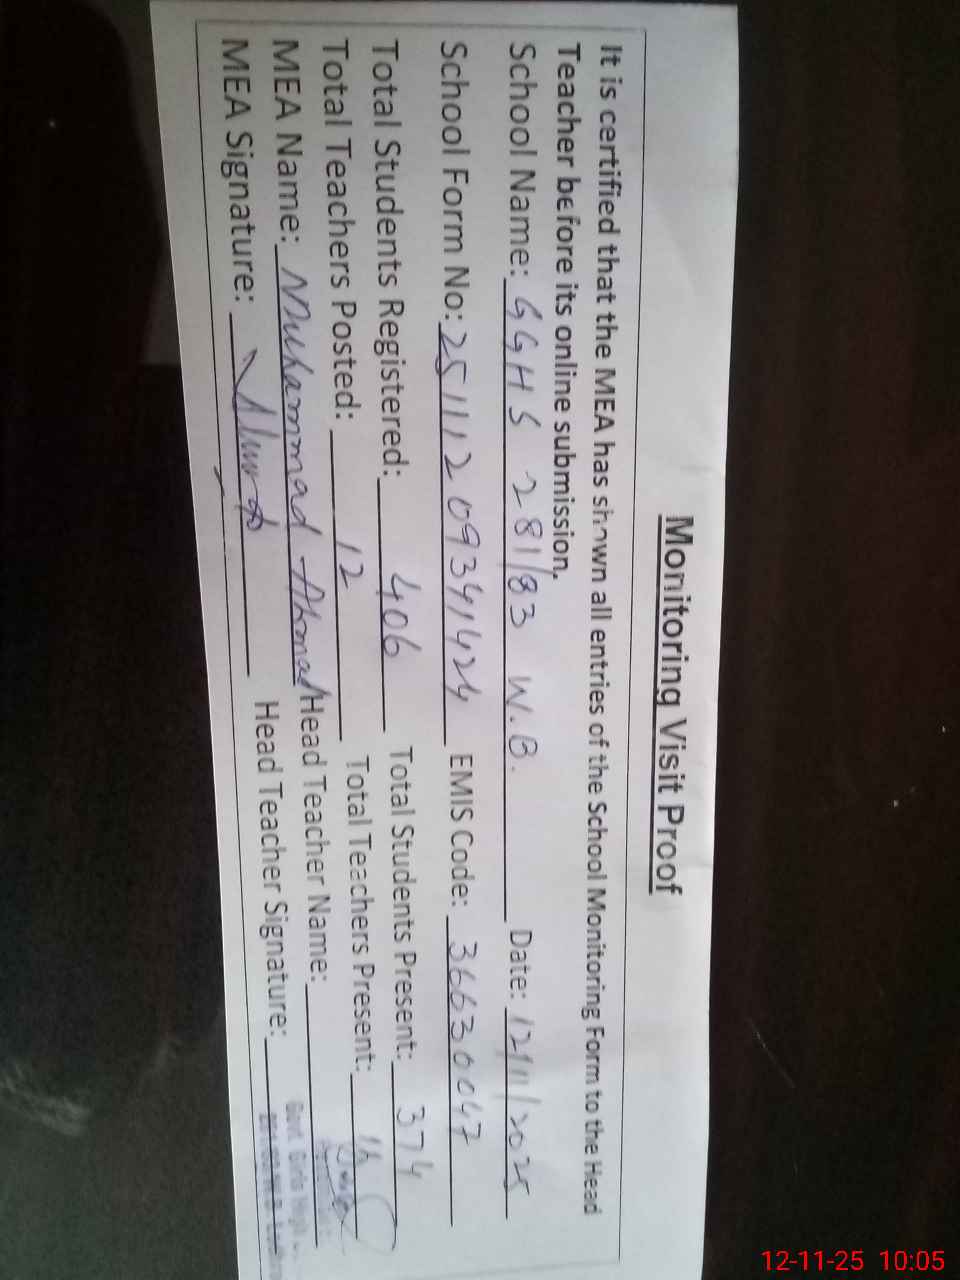 Monitoring Visit Proof
It is certified that the MEA has shown all entries of the School Monitoring Form to the Head
Teacher before its online submission.
School Name: GGHS 281/83 W.B. Date: 12/11/2025
School Form No: 25111209341424 EMIS Code: 36630047
Total Students Registered: 406 Total Students Present: 374
Total Teachers Posted: 12 Total Teachers Present:
MEA Name: Muhammad Ahmad Head Teacher Name:
MEA Signature: Head Teacher Signature:
Govt. Girls High
12-11-25 10:05